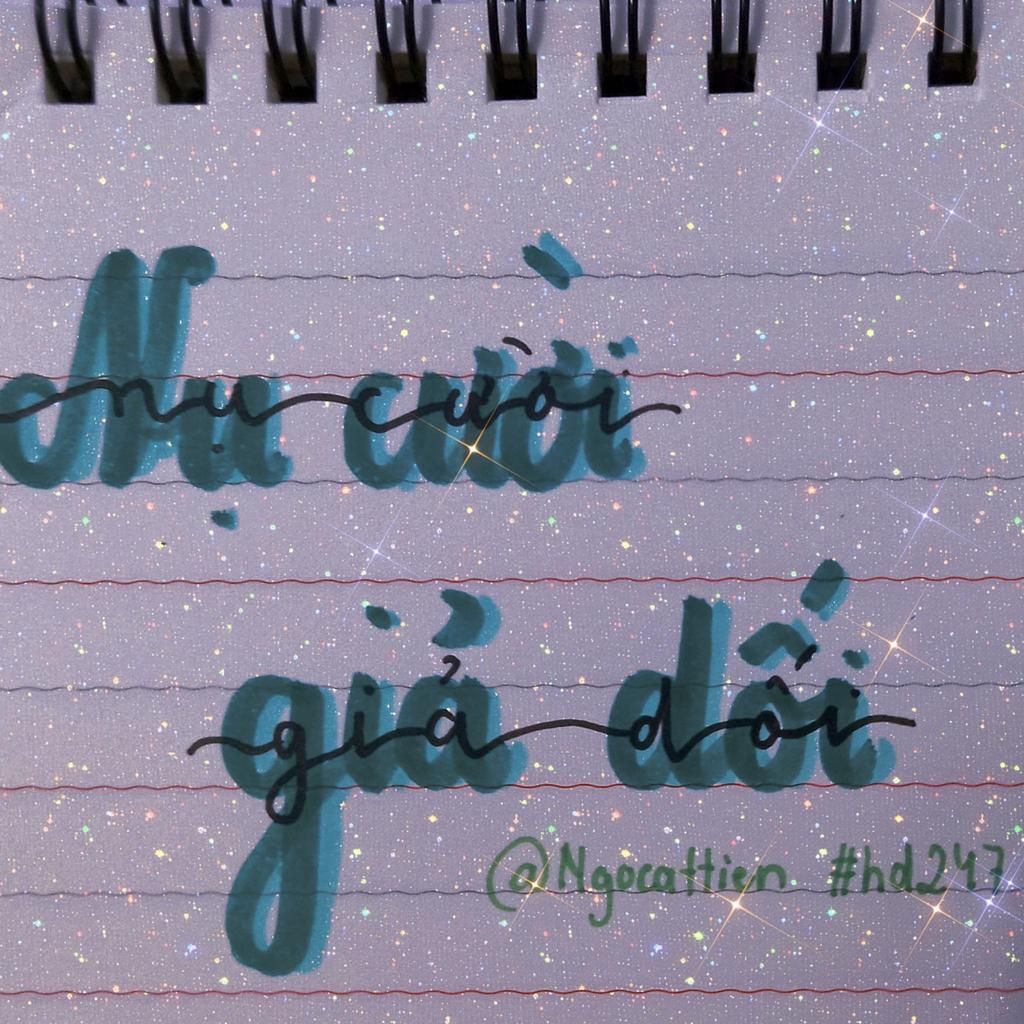 Nụ cười
nụ cười
giả dối
giả dối
@Ngocattien #hd247